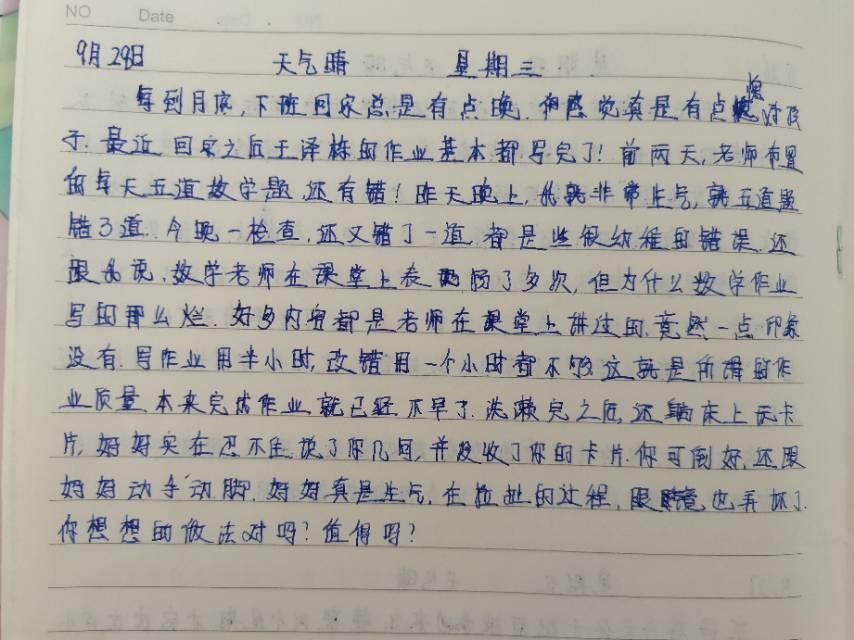 NO Date
9月29日 天气晴 星期三
每到月底,下班回家总是有点晚.有时感觉真是有点愧对孩
子.最近回家之后王泽栋的作业基本都写完了!前两天,老师布置
的每天五道数学题还有错!昨天晚上,我就非常生气,就五道题
错3道.今晚一检查,还又错了一道.都是些很幼稚的错误.还
跟我说.数学老师在课堂上表扬了多次,但为什么数学作业
写的那么烂.好多内容都是老师在课堂上讲过的.竟然一点印象
没有.写作业用半小时,改错用一个小时都不够.这就是所谓的作
业质量.本来完成作业就已经不早了.洗漱完之后,还躺床上玩卡
片,妈妈实在忍不住说了你几句,并没收了你的卡片.你可倒好,还跟
妈妈动手动脚.妈妈真是生气,在拉扯的过程,眼睛也弄坏了.
你想想的做法对吗?值得吗?